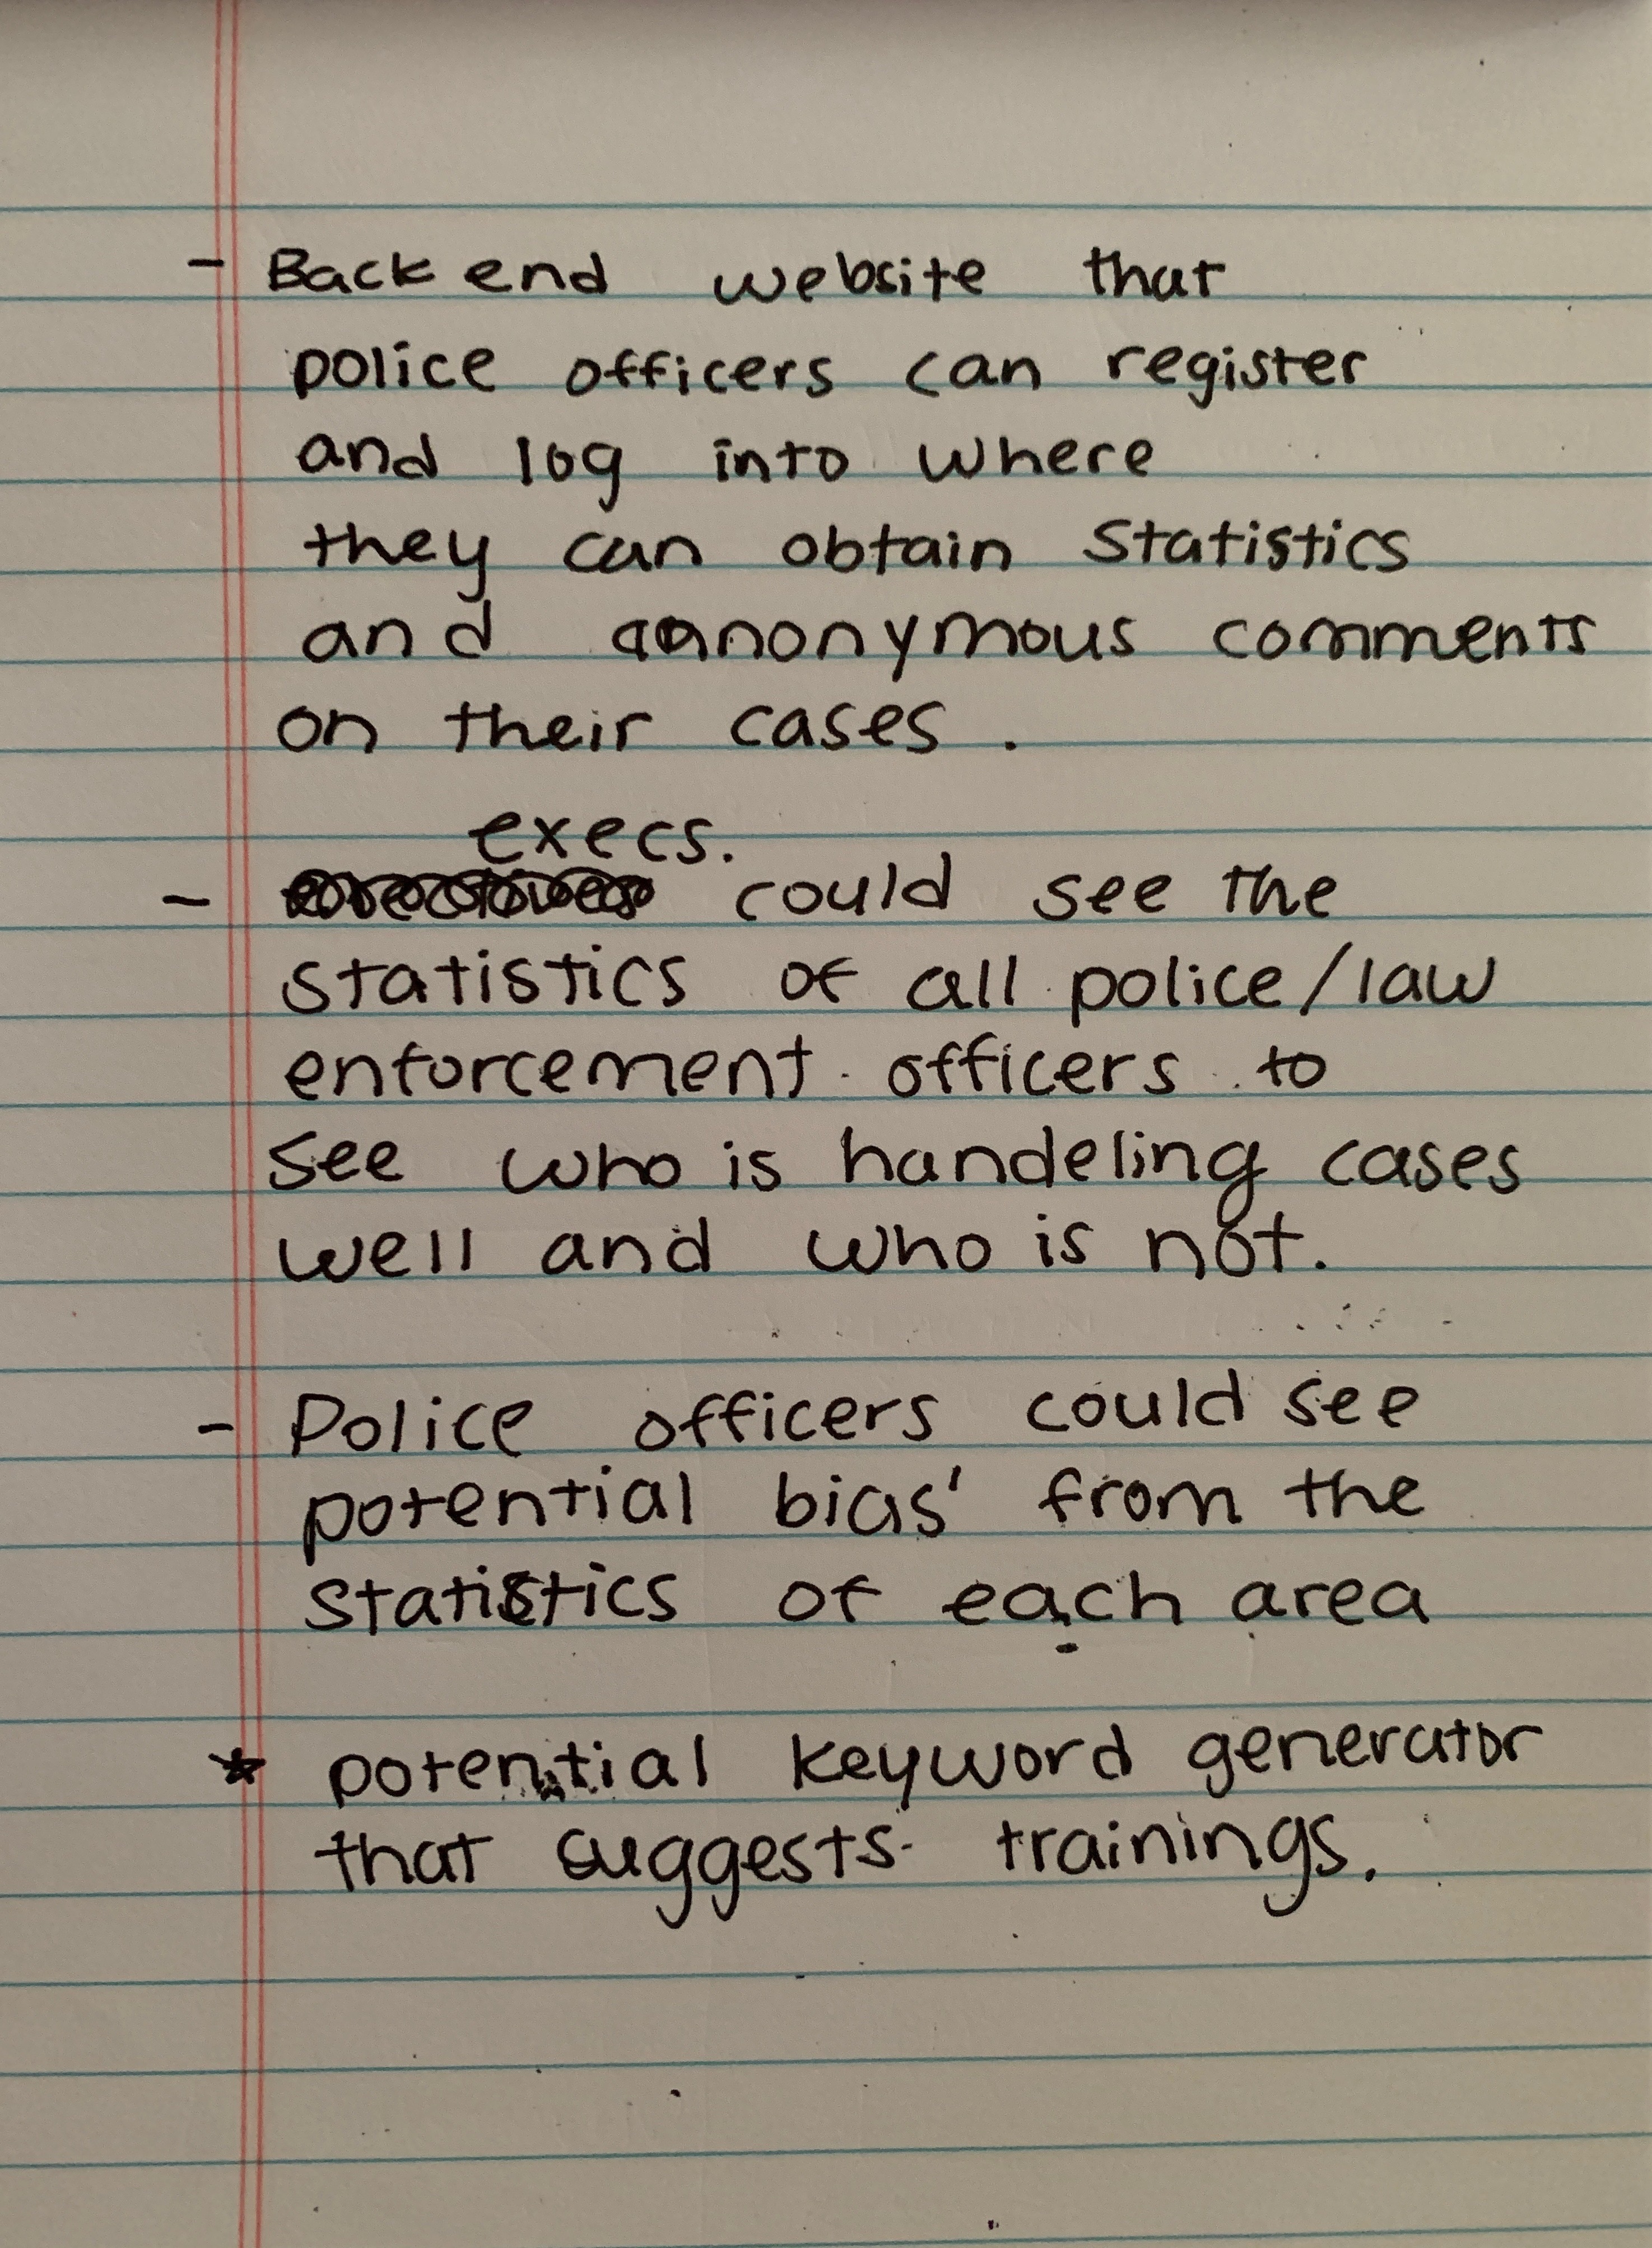 - Back end website that
police officers can register
and log into where
they can obtain statistics
and annonymous comments
on their cases.
execs.
- could see the
statistics of all police/law
enforcement officers to
see who is handeling cases
well and who is not.
- Police officers could see
potential bias' from the
statistics of each area
* potential keyword generator
that suggests trainings.